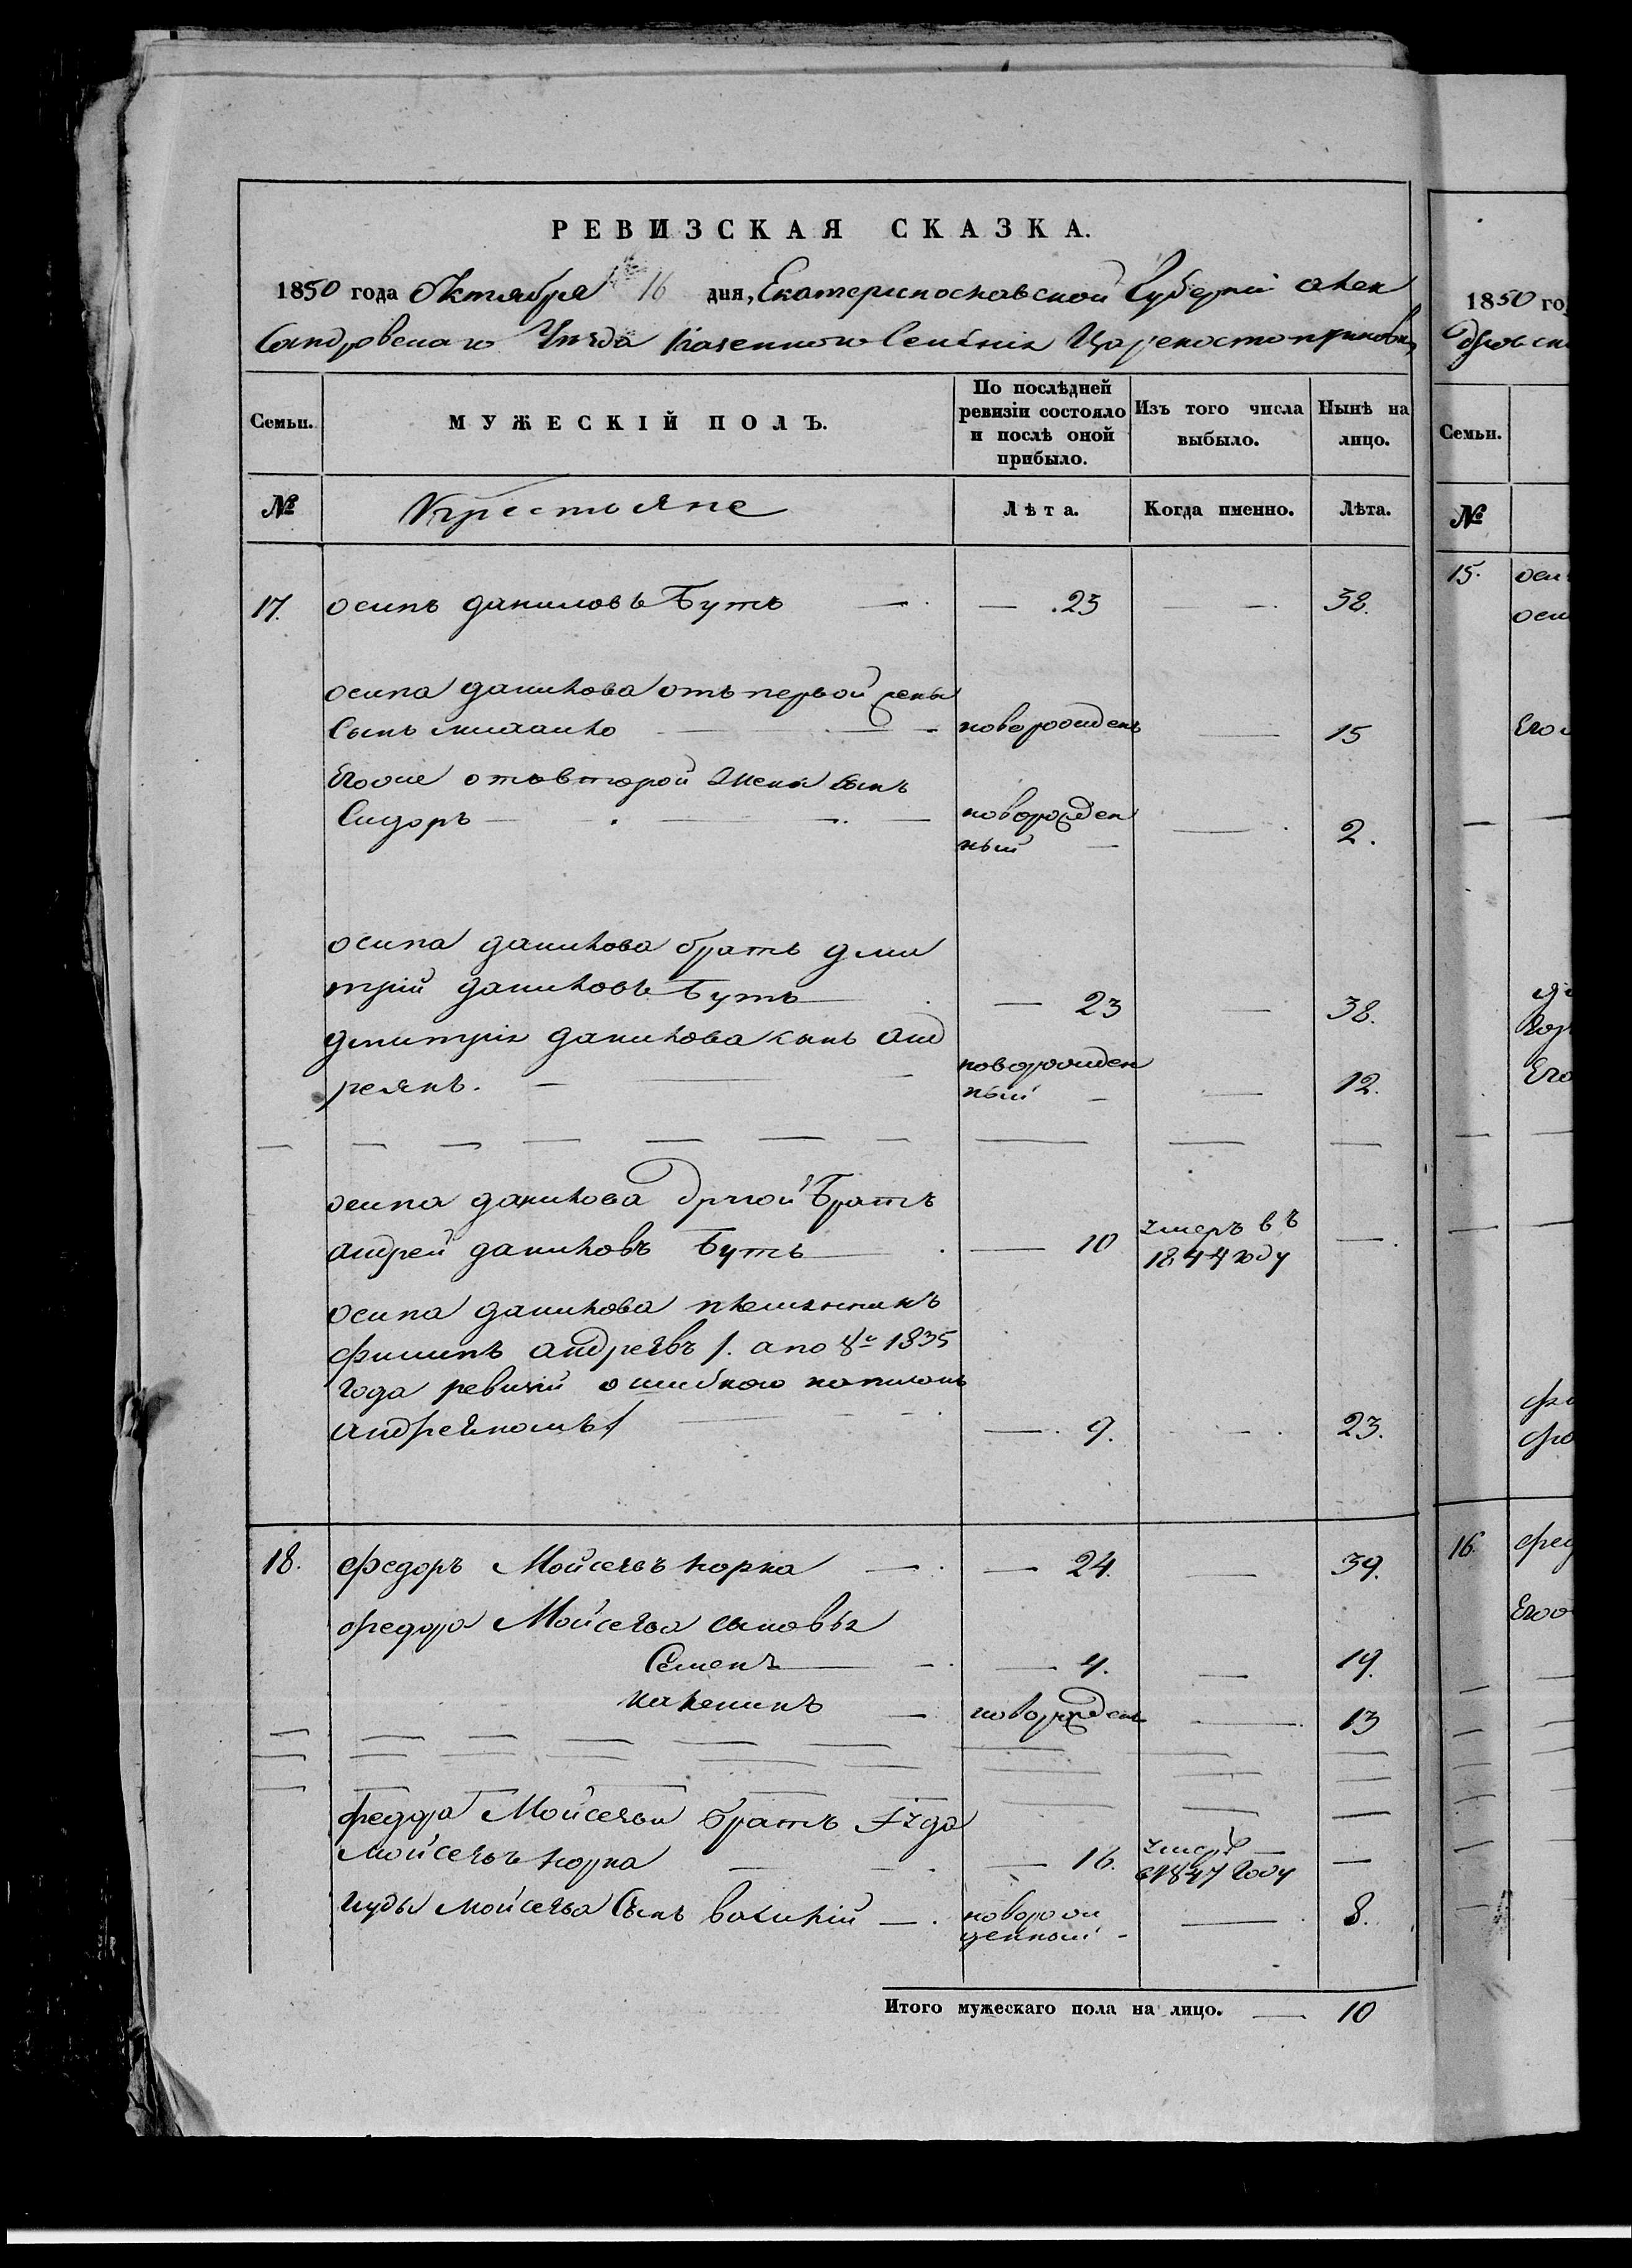 РЕВИЗСКАЯ СКАЗКА.
1850 года Октября 16 дня, Екатеринославской Губерніи Алек
сандровскаго Уѣзда Казеннаго Селенія
Семьи.
МУЖЕСКІЙ ПОЛЪ.
По послѣдней ревизіи состояло и послѣ оной прибыло.
Изъ того числа выбыло.
Нынѣ на лицо.
№
Крестьяне
Лѣта.
Когда именно.
Лѣта.
17. осипъ даниловъ Бутъ — 23 — 38.
осипа данилова отъ первой жены
Сынъ михайло — новорожденъ — 15
Егоже отъ второй жены сынъ
Сидоръ — новорожден
ный — 2.
осипа данилова братъ дми
трій даниловъ Бутъ — 23 — 38.
дмитрія данилова сынъ анд
реянъ. — новорожден
ный — 12.
осипа данилова другой братъ
андрей даниловъ Бутъ — 10 умеръ въ
1844 году —
осипа данилова племянникъ
филипъ андреевъ /. а по 8й 1835
года ревизіи ошибкою написанъ
андреяномъ/ — 9. — 23.
18. федоръ Мойсеевъ корка — 24. — 39.
федора Мойсеева сыновья
Семенъ — 4. — 19.
каленикъ — новорожденъ — 13
федора Мойсеева братъ Iуда
Мойсеевъ корка — 16. умеръ
1847 году —
Iуды Мойсеева Сынъ василій — новорож
денный — 8.
Итого мужескаго пола на лицо. — 10
1850 го
Семьи.
№
15.
16.